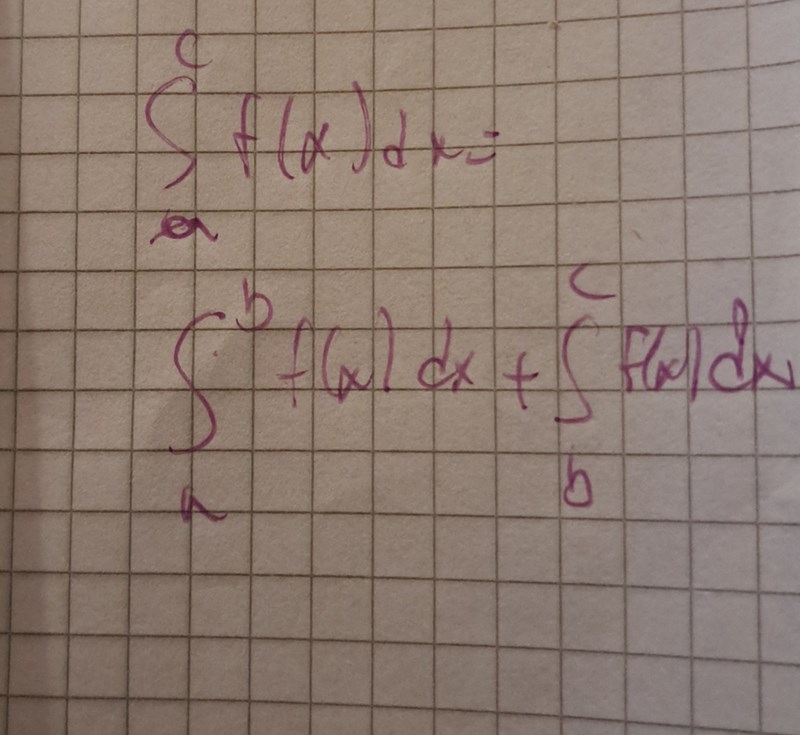 ∫_a^c f(x)dx=
∫_a^b f(x)dx + ∫_b^c f(x)dx